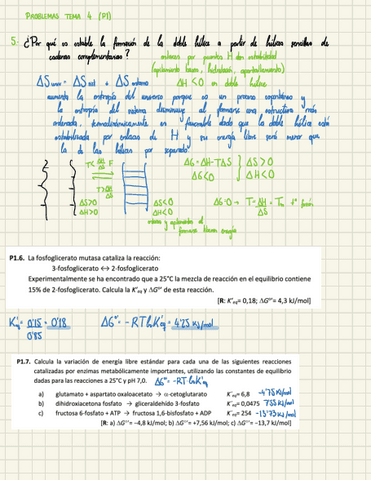 PROBLEMAS TEMA 4 (P1)
5. ¿Por qué es estable la formación de la doble hélice a partir de hélices sencillas de
cadenas complementarias?
enlaces por puentes H dan estabilidad
(apilamiento bases, hidratación, apantallamiento)
ΔH<0 en doble hélice
ΔSuniv = ΔSsist + ΔSentorno
aumenta la entropía del universo porque es un proceso espontáneo y
la entropía del sistema disminuye al formarse una estructura más
ordenada, termodinámicamente es favorable dado que la doble hélice está
estabilizada por enlaces de H y su energía libre será menor que
la de las hélices por separado.
ΔG=ΔH-TΔS
ΔG<0
ΔS>0
ΔH<0
ΔS>0
ΔH>0
ΔS<0
ΔH<0
ΔG=0 → T=ΔH/ΔS = Tm tª fusión
P1.6. La fosfoglicerato mutasa cataliza la reacción:
3-fosfoglicerato ↔ 2-fosfoglicerato
Experimentalmente se ha encontrado que a 25°C la mezcla de reacción en el equilibrio contiene
15% de 2-fosfoglicerato. Calcula la K'eq y ΔG°' de esta reacción.
[R: K'eq= 0,18; ΔG°'= 4,3 kJ/mol]
K'eq = 0'15/0'85 = 0'18
ΔG°' = -RTlnK'eq = 4'25 kJ/mol
P1.7. Calcula la variación de energía libre estándar para cada una de las siguientes reacciones
catalizadas por enzimas metabólicamente importantes, utilizando las constantes de equilibrio
dadas para las reacciones a 25°C y pH 7,0. ΔG°' = -RTlnK'eq
a) glutamato + aspartato oxaloacetato → α-cetoglutarato K'eq= 6,8 -4'75 kJ/mol
b) dihidroxiacetona fosfato → gliceraldehído 3-fosfato K'eq= 0,0475 7'55 kJ/mol
c) fructosa 6-fosfato + ATP → fructosa 1,6-bisfosfato + ADP K'eq= 254 -13'73 kJ/mol
[R: a) ΔG°'= -4,8 kJ/mol; b) ΔG°'= +7,56 kJ/mol; c) ΔG°'= -13,7 kJ/mol]